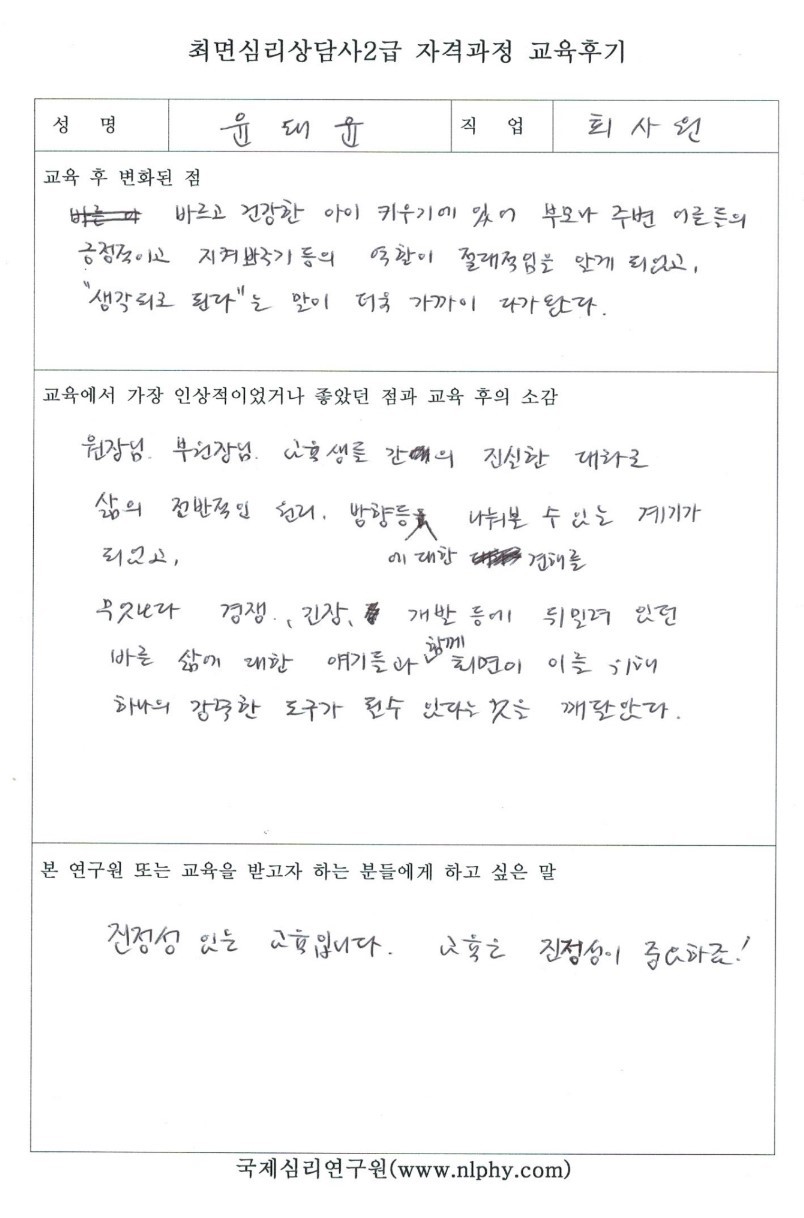 최면심리상담사2급 자격과정 교육후기
성 명 윤태윤 직 업 회사원
교육 후 변화된 점
바르고 건강한 아이 키우기에 있어 부모나 주변 어른들의
긍정적이고 지켜봐주기 등의 역할이 절대적임을 알게 되었고,
"생각되로 된다"는 말이 더욱 가까이 다가왔다.
교육에서 가장 인상적이었거나 좋았던 점과 교육 후의 소감
원장님. 부원장님. 교육생들 간의 진실한 대화로
삶의 전반적인 원리. 방향등 나눠볼 수 있는 계기가
되었고, 에 대한 견해를
무엇보다 경쟁., 긴장, 개발 등에 뒤밀려 있던
바른 삶에 대한 얘기들과 함께 최면이 이를 위해
하나의 강력한 도구가 될수 있다는 것을 깨달았다.
본 연구원 또는 교육을 받고자 하는 분들에게 하고 싶은 말
진정성 있는 교육입니다. 교육은 진정성이 중요하죠!
국제심리연구원(www.nlphy.com)